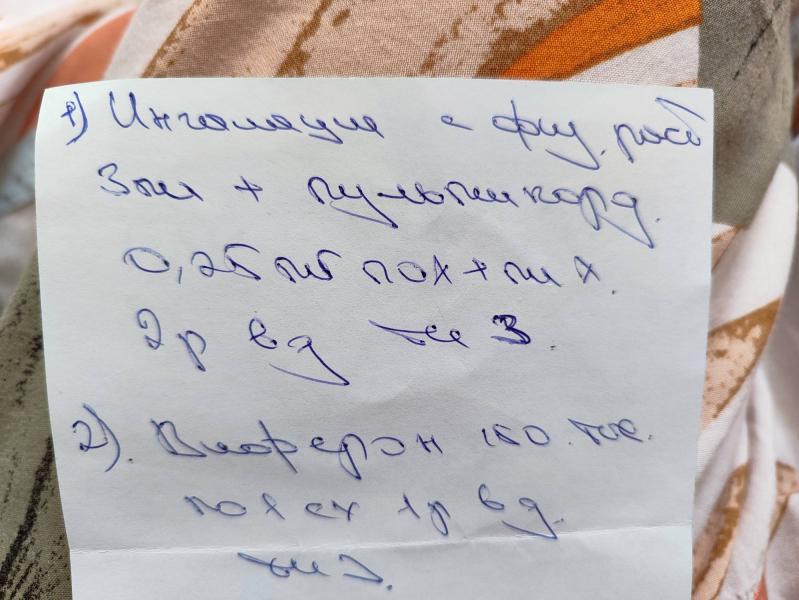 1) Ингаляция с физ. раст
3мл + пульмикорд.
0,25мг
2р в д 3.
2). Виферон 150. тыс.
1р в д.